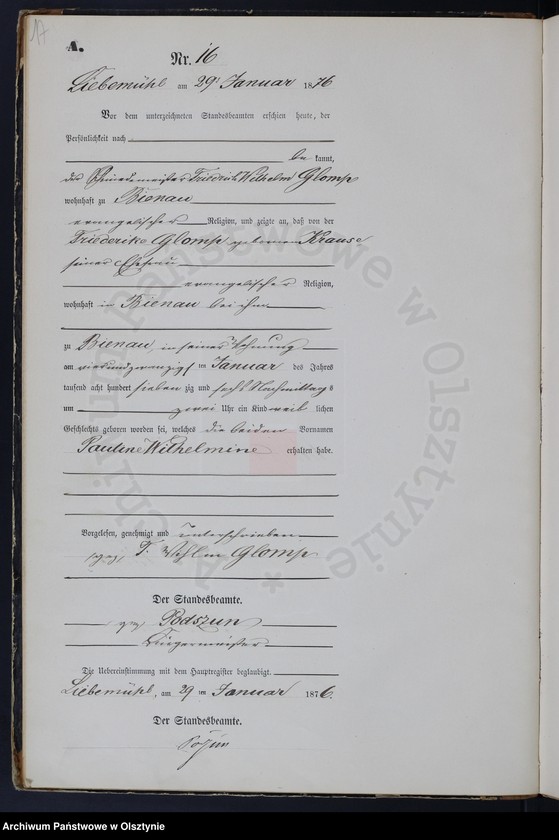 17
A.
Nr. 16
Liebemühl am 29 Januar 1876
Vor dem unterzeichneten Standesbeamten erschien heute, der
Persönlichkeit nach
be kannt,
der Schmiedemeister Friedrich Wilhelm Glomp
wohnhaft zu Bienau
evangelischer Religion, und zeigte an, daß von der
Friederike Glomp geborenen Krause
seiner Ehefrau
evangelischer Religion,
wohnhaft in Bienau bei ihm
zu Bienau, in seiner Wohnung
am vierundzwanzigsten Januar des Jahres
tausend acht hundert sieben zig und sechs Nachmittags
um zwei Uhr ein Kind weib lichen
Geschlechts geboren worden sei, welches die beiden Vornamen
Pauline Wilhelmine erhalten habe.
Vorgelesen, genehmigt und unterschrieben
gez. F. Wilhelm Glomp
Der Standesbeamte.
gez Podszun
Bürgermeister
Die Uebereinstimmung mit dem Hauptregister beglaubigt.
Liebemühl, am 29 ten Januar 1876.
Der Standesbeamte.
Archiwum Państwowe w Olsztynie *
Archiwum Państwowe w Olsztynie